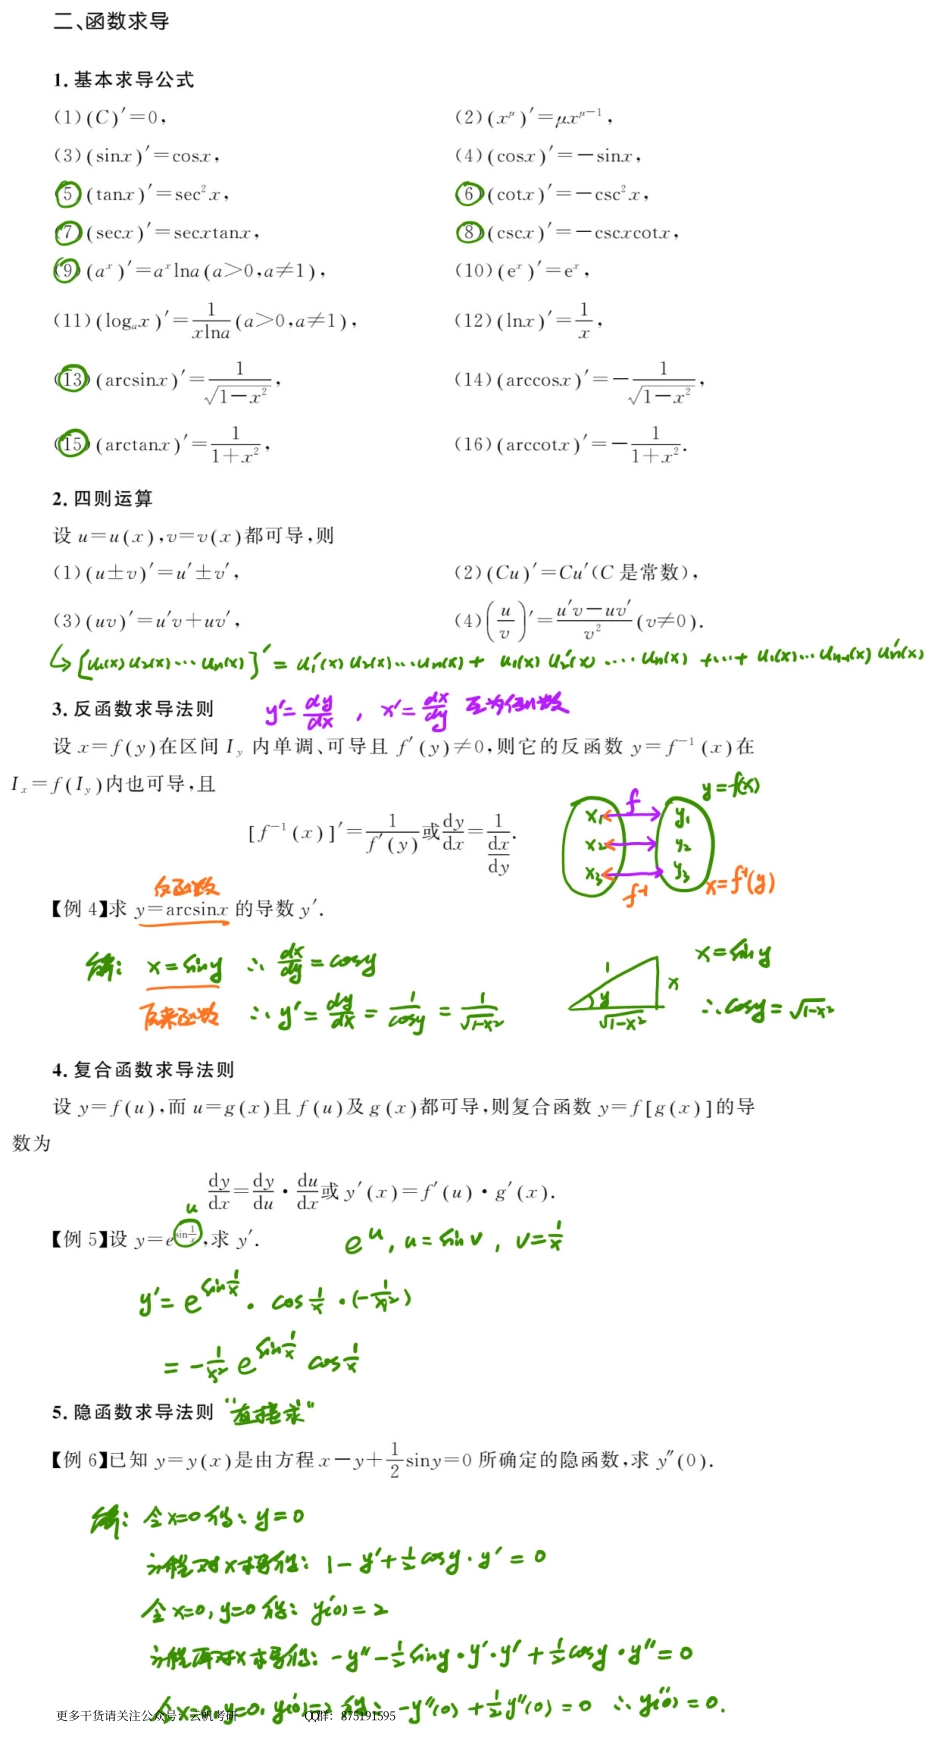 二、函数求导
1. 基本求导公式
(1) (C)′=0, (2) (xᵘ)′=μxᵘ⁻¹,
(3) (sinx)′=cosx, (4) (cosx)′=−sinx,
(5) (tanx)′=sec²x, (6) (cotx)′=−csc²x,
(7) (secx)′=secxtanx, (8) (cscx)′=−cscxcotx,
(9) (aˣ)′=aˣlna(a>0,a≠1), (10) (eˣ)′=eˣ,
(11) (logₐx)′=1/(xlna)(a>0,a≠1), (12) (lnx)′=1/x,
(13) (arcsinx)′=1/√(1−x²), (14) (arccosx)′=−1/√(1−x²),
(15) (arctanx)′=1/(1+x²), (16) (arccotx)′=−1/(1+x²).
2. 四则运算
设 u=u(x),v=v(x)都可导,则
(1) (u±v)′=u′±v′, (2) (Cu)′=Cu′(C 是常数),
(3) (uv)′=u′v+uv′, (4) (u/v)′=(u′v−uv′)/v²(v≠0).
↳ [u₁(x)u₂(x)⋯uₙ(x)]′ = u₁′(x)u₂(x)⋯uₙ(x) + u₁(x)u₂′(x)⋯uₙ(x) +⋯+ u₁(x)⋯uₙ₋₁(x)uₙ′(x)
3. 反函数求导法则 y′=dy/dx , x′=dx/dy 互为倒数
设 x=f(y)在区间 Iy 内单调、可导且 f′(y)≠0,则它的反函数 y=f⁻¹(x)在
Ix=f(Iy)内也可导,且
y=f(x)
f
x₁ y₁
[f⁻¹(x)]′=1/f′(y)或dy/dx=1/(dx/dy).
x₂ y₂
x₃ y₃
f⁻¹ x=f⁻¹(y)
反函数
【例 4】求 y=arcsinx 的导数 y′.
解: x=siny ∴ dx/dy=cosy
原来函数 ∴ y′=dy/dx=1/cosy=1/√(1−x²)
1 x y √(1−x²)
x=siny
∴cosy=√(1−x²)
4. 复合函数求导法则
设 y=f(u),而 u=g(x)且 f(u)及 g(x)都可导,则复合函数 y=f[g(x)]的导
数为
dy/dx=dy/du·du/dx或 y′(x)=f′(u)·g′(x).
u
【例 5】设 y=e^(sin1/x),求 y′. eᵘ, u=sinv, v=1/x
y′=e^(sin1/x)·cos1/x·(−1/x²)
=−1/x² e^(sin1/x) cos1/x
5. 隐函数求导法则 "直接求"
【例 6】已知 y=y(x)是由方程 x−y+1/2siny=0 所确定的隐函数,求 y″(0).
解: 令x=0得: y=0
方程对x求导得: 1−y′+1/2cosy·y′=0
令x=0, y=0得: y′(0)=2
方程再对x求导得: −y″−1/2siny·y′·y′+1/2cosy·y″=0
令x=0, y=0, y′(0)=2得: −y″(0)+1/2y″(0)=0 ∴ y″(0)=0.
更多干货请关注公众号：云帆考研 QQ群：875191595